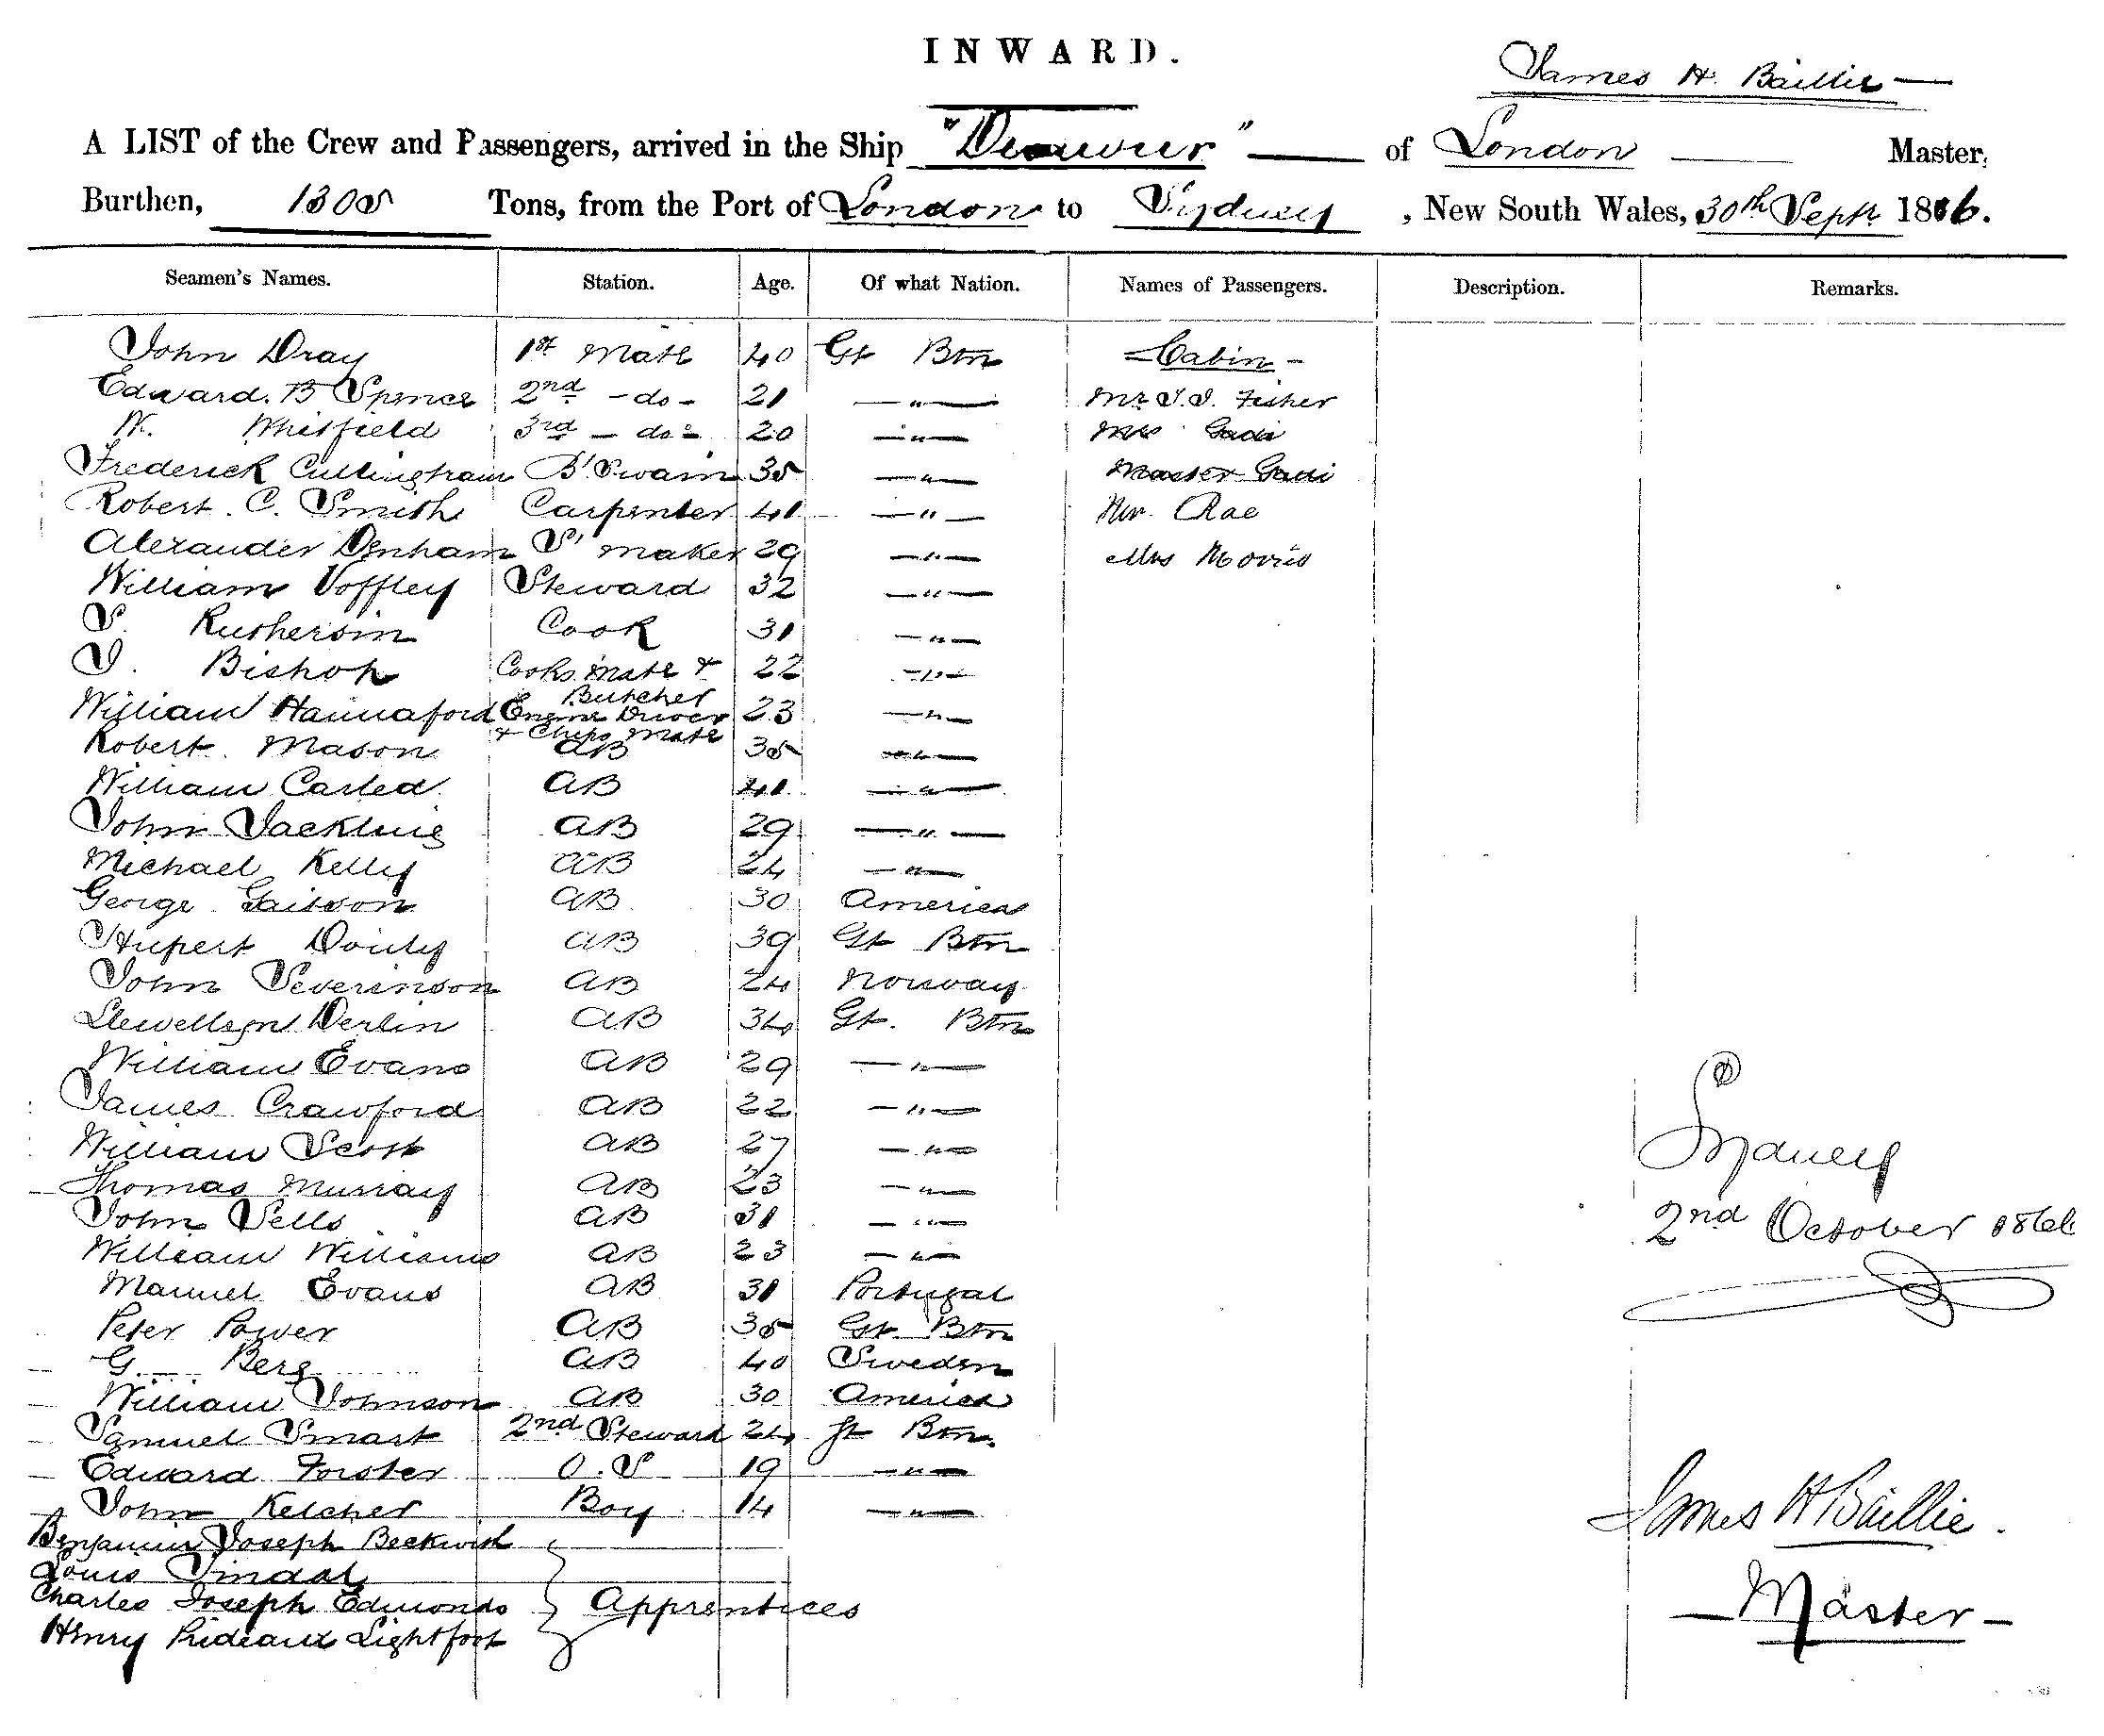 INWARD.
James H. Baillie
A LIST of the Crew and Passengers, arrived in the Ship " " of London Master,
Burthen, 1300 Tons, from the Port of London to Sydney, New South Wales, 30th Sept. 1866.
Seamen's Names. Station. Age. Of what Nation. Names of Passengers. Description. Remarks.
John Dray 1st Mate 40 Gt Btn Cabin -
Edward. B Spence 2nd - do - 21 — " — Mr J. J. Fisher
W. Whitfield 3rd - do - 20 — " — Mrs
Frederick Cullingham B'Swain 35 — " — Master
Robert. C. Smith Carpenter 41 — " — Mr. Rae
Alexander Denham S'maker 29 — " — Mrs Morris
William Voffley Steward 32 — " —
S. Rushersin Cook 31 — " —
J. Bishop Cooks Mate & Butcher 22 — " —
William Hannaford Engine Driver & Chips Mate 23 — " —
Robert. Mason AB 35 — " —
William Carled AB 41 — " —
John Jackling AB 29 — " —
Michael Kelly AB 24 — " —
George AB 30 America
Hupert Douty AB 39 Gt Btn
John Severinson AB 24 Norway
Llewellyn Derlin AB 34 Gt. Btn
William Evans AB 29 — " —
James Crawford AB 22 — " —
William Scott AB 27 — " —
Thomas Murray AB 23 — " —
John Sells AB 31 — " —
William Williams AB 23 — " —
Manuel Evans AB 31 Portugal
Peter Power AB 35 Gt Btn
G. Berg AB 40 Sweden
William Johnson AB 30 America
Samuel Smart 2nd Steward 24 Gt Btn.
Edward Forster O. S 19 — " —
John Kelcher Boy 14 — " —
Benjamin Joseph Beckwith
Louis Tindal
Charles Joseph Edmonds Apprentices
Henry Prideaux Lightfoot
Sydney
2nd October 1866
James H Baillie.
— Master —